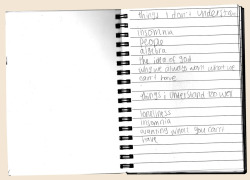 things I don't understand
insomnia
people
algebra
the idea of god
why we always want what we
can't have
things i understand too well
loneliness
insomnia
wanting what you can't
have